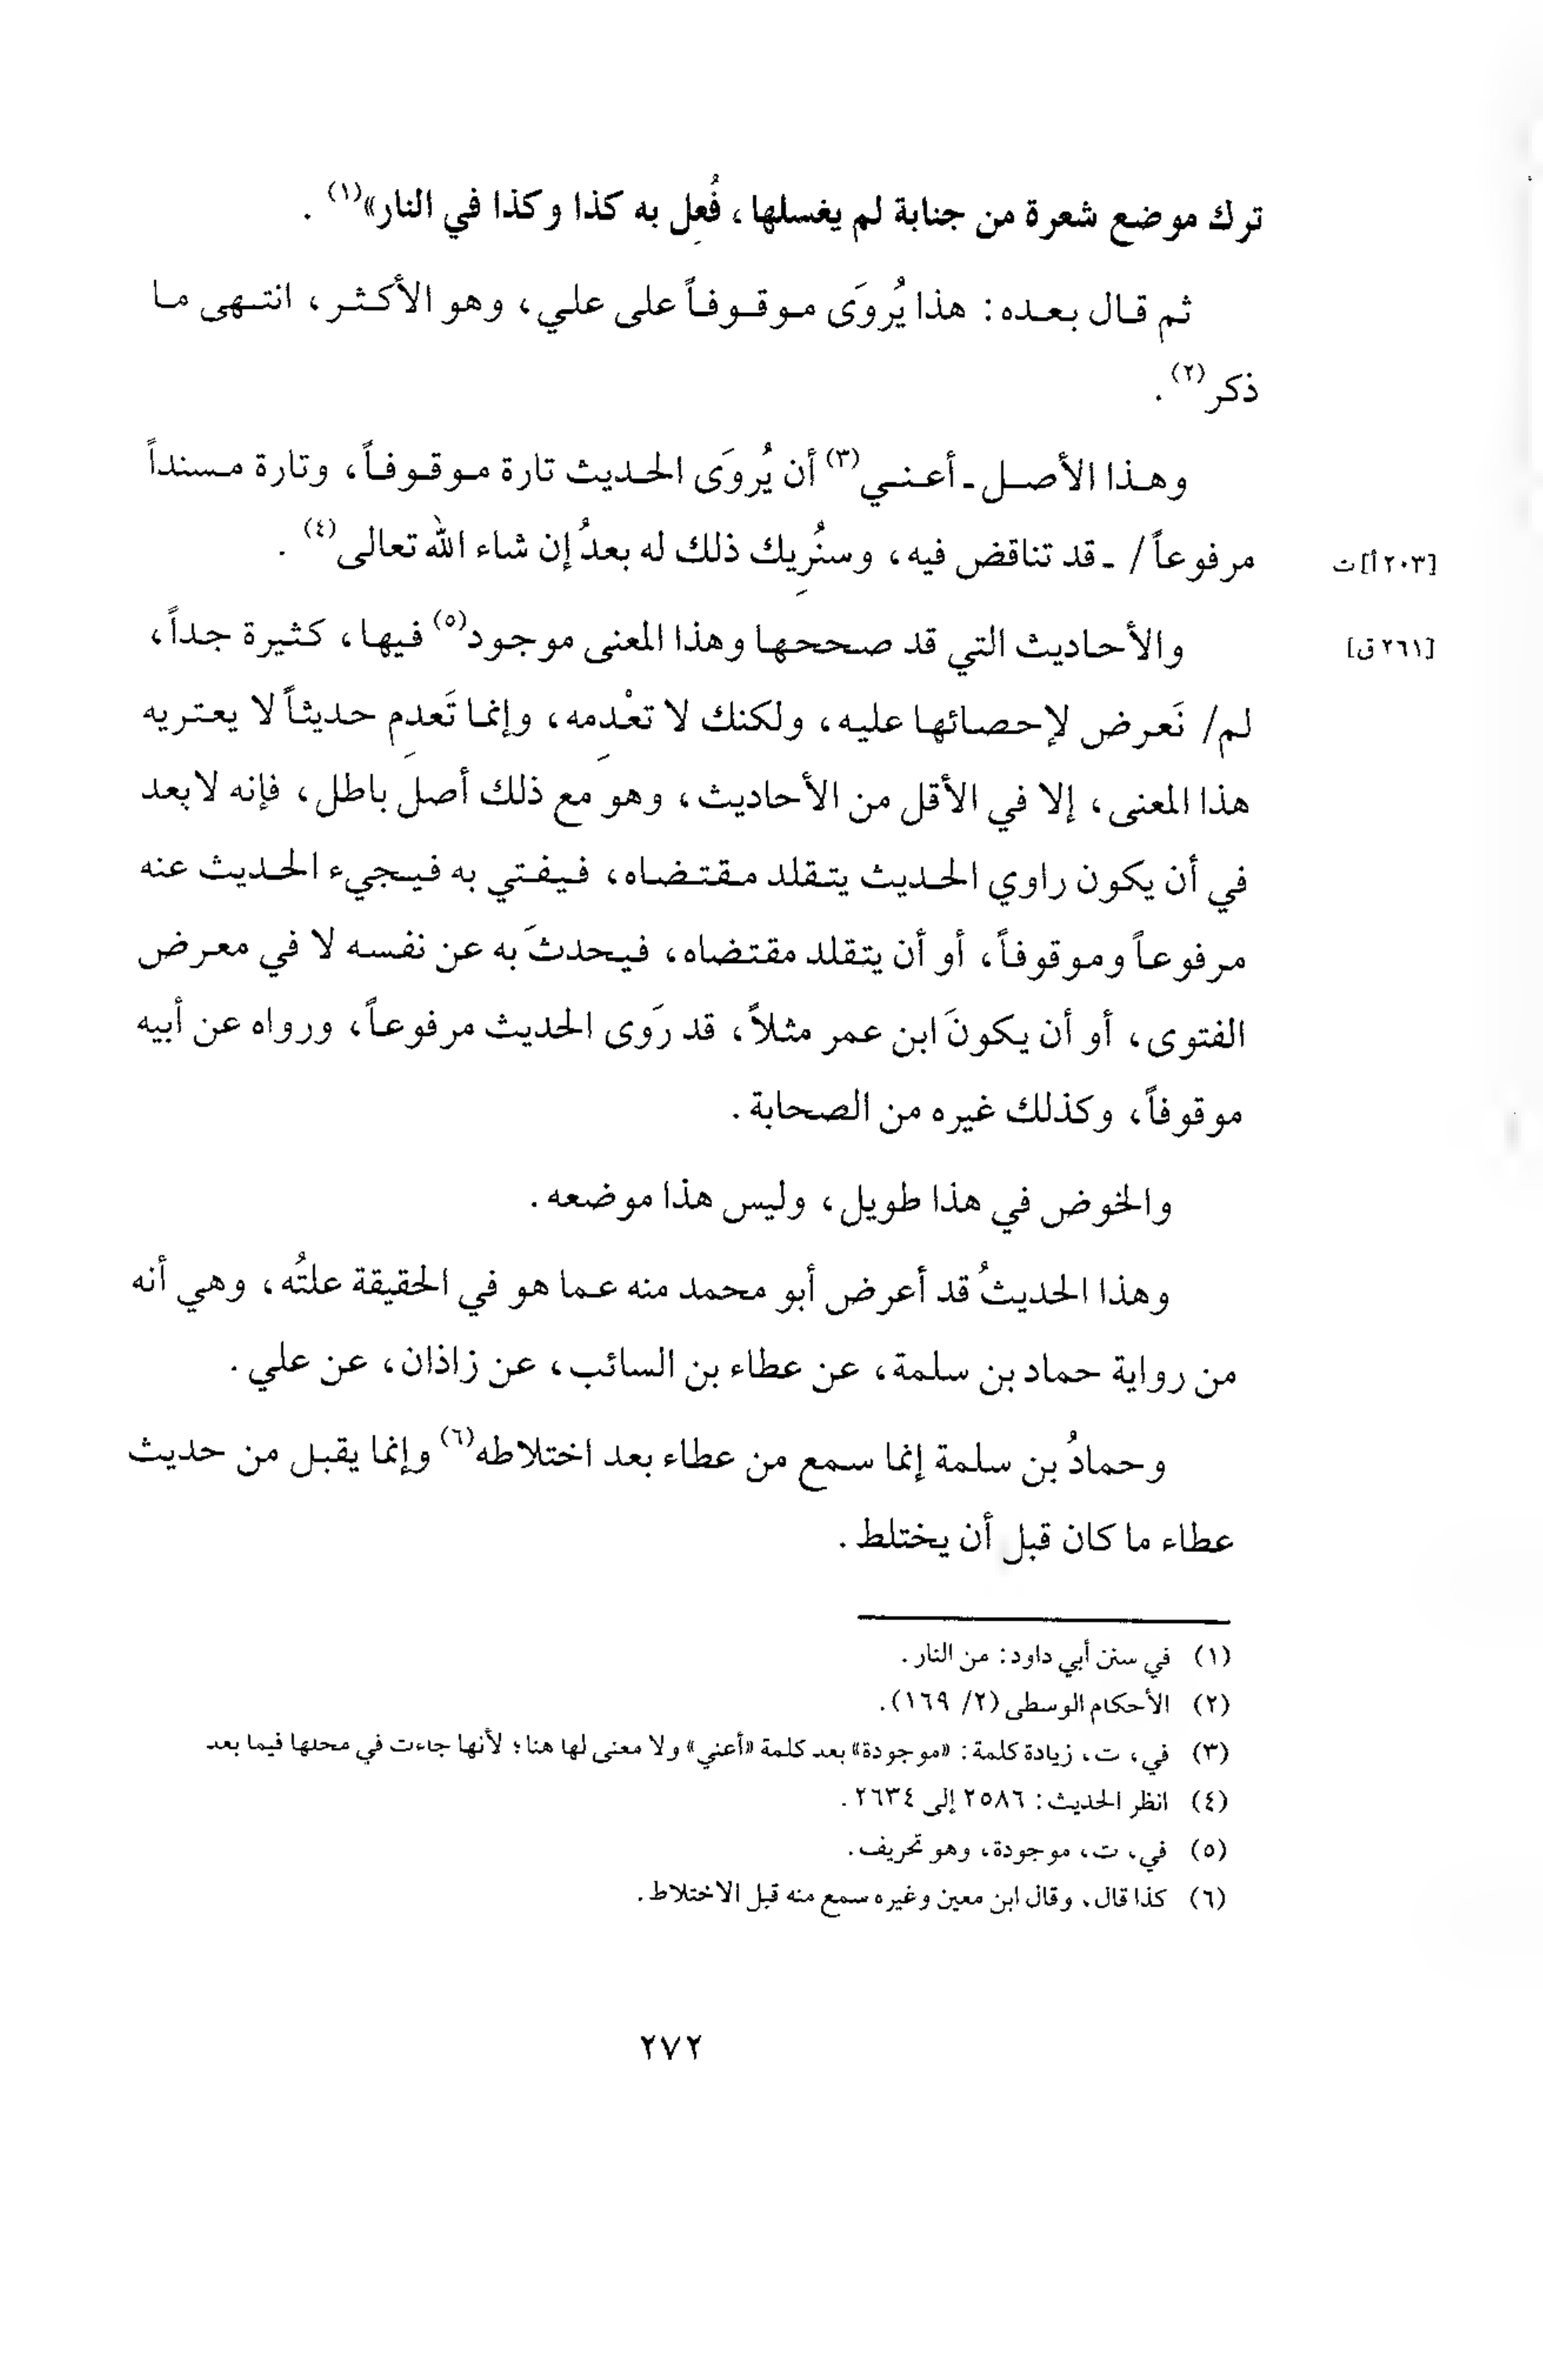 ترك موضع شعرة من جنابة لم يغسلها، فُعِل به كذا وكذا في النار»(١).
ثم قال بعده: هذا يُروَى موقوفاً على علي، وهو الأكثر، انتهى ما
ذكر(٢).
وهذا الأصل ـ أعني(٣) أن يُروَى الحديث تارة موقوفاً، وتارة مسنداً
مرفوعاً/ ـ قد تناقض فيه، وسنُرِيك ذلك له بعدُ إن شاء الله تعالى(٤).
[٢٠٣أ]ت
والأحاديث التي قد صححها وهذا المعنى موجود(٥) فيها، كثيرة جداً،
[٢٦١ق]
لم/ نَعرض لإحصائها عليه، ولكنك لا تعْدِمه، وإنما تَعدِم حديثاً لا يعتريه
هذا المعنى، إلا في الأقل من الأحاديث، وهو مع ذلك أصل باطل، فإنه لا بعد
في أن يكون راوي الحديث يتقلد مقتضاه، فيفتي به فيجيء الحديث عنه
مرفوعاً وموقوفاً، أو أن يتقلد مقتضاه، فيحدثَ به عن نفسه لا في معرض
الفتوى، أو أن يكونَ ابن عمر مثلاً، قد رَوى الحديث مرفوعاً، ورواه عن أبيه
موقوفاً، وكذلك غيره من الصحابة.
والخوض في هذا طويل، وليس هذا موضعه.
وهذا الحديثُ قد أعرض أبو محمد منه عما هو في الحقيقة علتُه، وهي أنه
من رواية حماد بن سلمة، عن عطاء بن السائب، عن زاذان، عن علي.
وحمادُ بن سلمة إنما سمع من عطاء بعد اختلاطه(٦) وإنما يقبل من حديث
عطاء ما كان قبل أن يختلط.
(١) في سنن أبي داود: من النار.
(٢) الأحكام الوسطى (٢/ ١٦٩).
(٣) في، ت، زيادة كلمة: «موجودة» بعد كلمة «أعني» ولا معنى لها هنا؛ لأنها جاءت في محلها فيما بعد
(٤) انظر الحديث: ٢٥٨٦ إلى ٢٦٣٤.
(٥) في، ت، موجودة، وهو تحريف.
(٦) كذا قال، وقال ابن معين وغيره سمع منه قبل الاختلاط.
٢٧٢